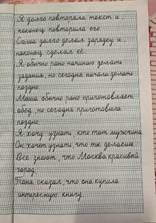 Я долго повторяла текст и,
наконец повторила его.
Саша долго делал зарядку и,
наконец, сделал её.
Я обычно рано начинаю делать
задания, но сегодня начала делать
поздно.
Маша обычно рано приготовляет
обед, но сегодня приготовила
поздно.
Я хочу узнать, кто тот мужчина.
Он хочет узнать что ты делаешь.
Все знают, что Москва красивый
город.
Анна сказал, что она купила
интересную книгу.